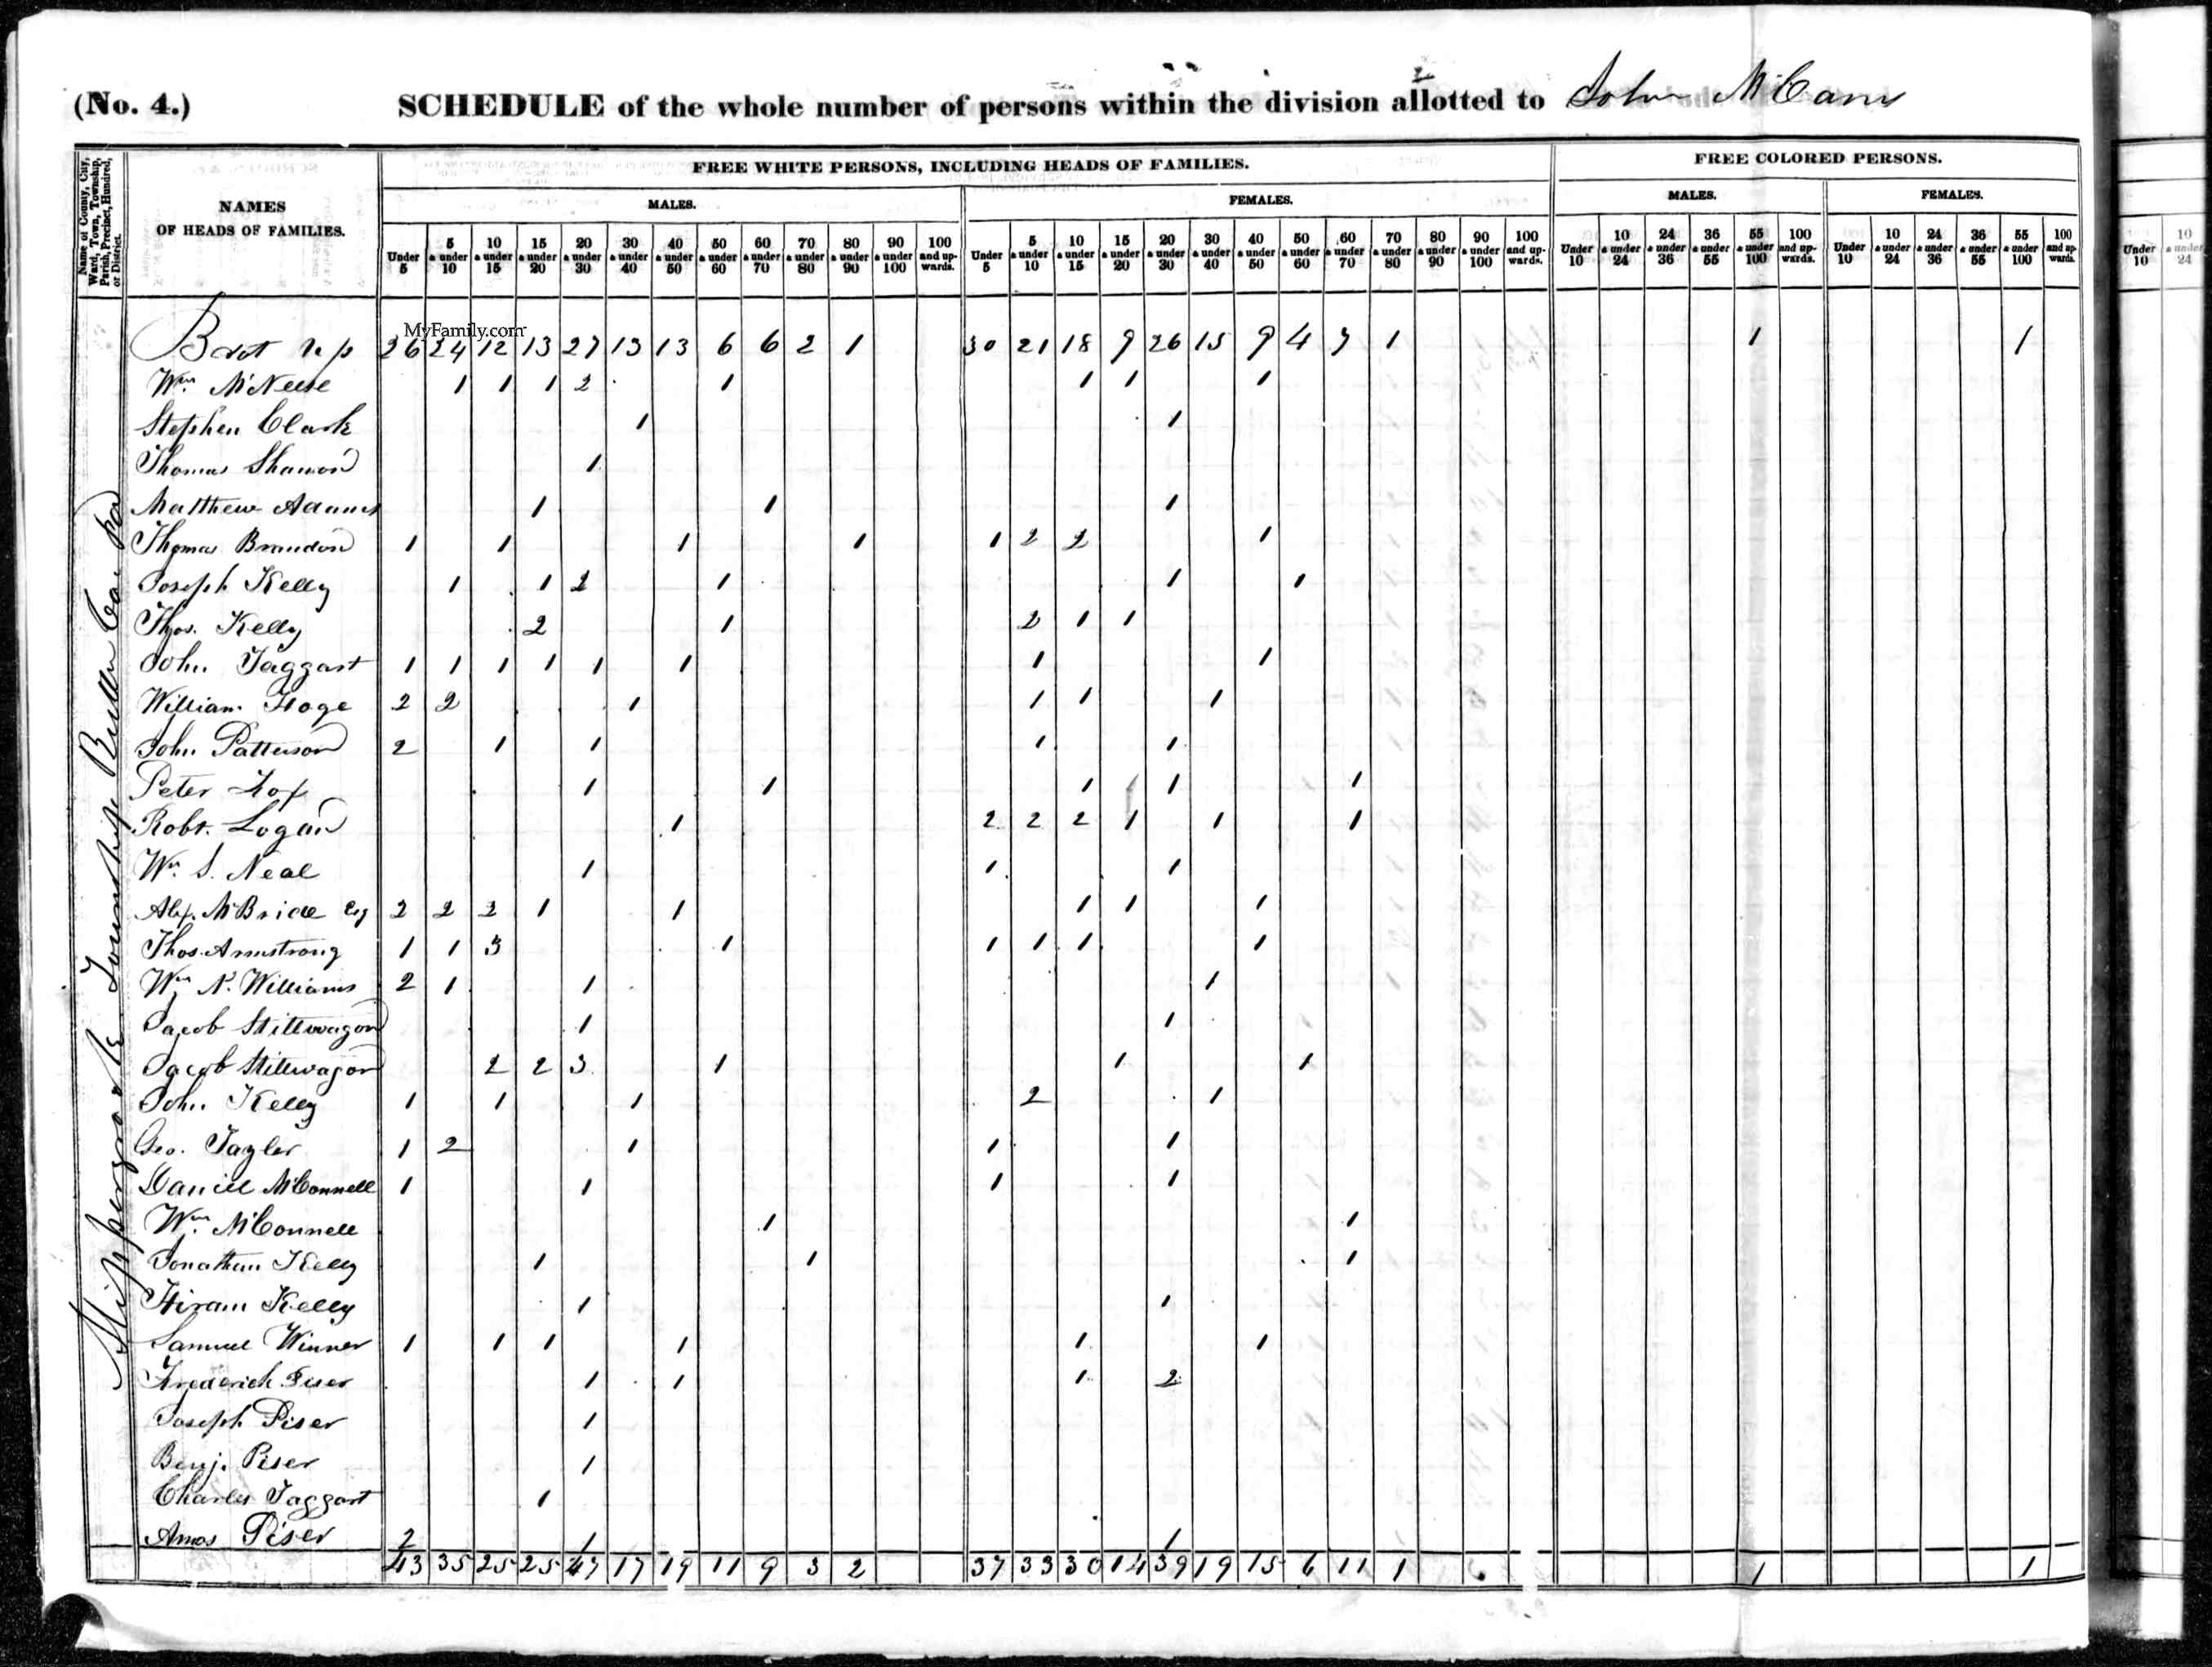 (No. 4.) SCHEDULE of the whole number of persons within the division allotted to John McCann
Name of County, City, Ward, Town, Township, Parish, Precinct, Hundred, or District.
NAMES OF HEADS OF FAMILIES.
FREE WHITE PERSONS, INCLUDING HEADS OF FAMILIES.
FREE COLORED PERSONS.
MALES. FEMALES. MALES. FEMALES.
Under 5 5 & under 10 10 & under 15 15 & under 20 20 & under 30 30 & under 40 40 & under 50 50 & under 60 60 & under 70 70 & under 80 80 & under 90 90 & under 100 100 and upwards. Under 5 5 & under 10 10 & under 15 15 & under 20 20 & under 30 30 & under 40 40 & under 50 50 & under 60 60 & under 70 70 & under 80 80 & under 90 90 & under 100 100 and upwards. Under 10 10 & under 24 24 & under 36 36 & under 55 55 & under 100 100 and upwards. Under 10 10 & under 24 24 & under 36 36 & under 55 55 & under 100 100 and upwards.
Under 10 10 & under 24
MyFamily.com
Slippery rock Township Butler Co. Pa
Brot up 26 24 12 13 27 13 13 6 6 2 1 30 21 18 9 26 15 9 4 7 1 1 1
Wm McNeese 1 1 1 2 1 1 1 1
Stephen Clark 1 1
Thomas Shannon 1
Matthew Adams 1 1 1
Thomas Brandon 1 1 1 1 1 2 2 1
Joseph Kelly 1 1 2 1 1 1
Thos. Kelly 2 1 2 1 1
John Taggart 1 1 1 1 1 1 1 1
William Hoge 2 2 1 1 1 1
John Patterson 2 1 1 1 1
Peter 1 1 1 1 1
Robt. Logan 1 2 2 2 1 1 1
Wm. S. Neal 1 1 1
Alex. McBride Esq 2 2 2 1 1 1 1 1
Thos. Armstrong 1 1 3 1 1 1 1 1
Wm N. Williams 2 1 1 1
Jacob Stillwagon 1 1
Jacob Stillwagon 2 2 3 1 1 1
John Kelly 1 1 1 2 1
Geo. Taylor 1 2 1 1 1
Daniel McConnell 1 1 1 1
Wm McConnell 1 1
Jonathan Kelly 1 1 1
Hiram Kelly 1 1
Samuel Winner 1 1 1 1 1 1
Frederick Piser 1 1 1 2
Joseph Piser 1
Benj. Piser 1
Charles Taggart 1
Amos Piser 2 1 1
43 35 25 25 47 17 19 11 9 3 2 37 33 30 14 39 19 15 6 11 1 1 1